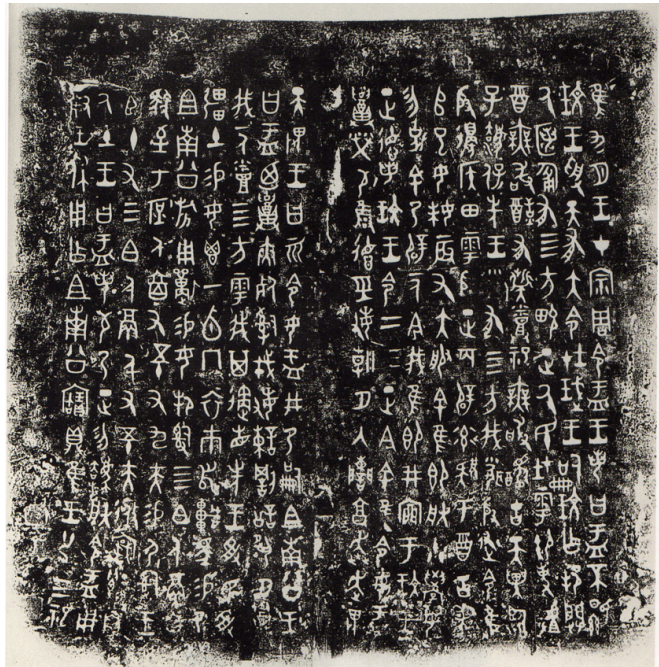 隹九月王才宗周令盂王若曰盂不顯
玟王受天有大令在珷王嗣玟乍邦闢
氒匿匍有四方畯正氒民在雩御事𠭯
酉無敢酖有髭烝祀無敢醻古天異臨
子灋保先王有四方我聞殷述令隹
殷邊侯田雩殷正百辟率肄于酉古喪
師巳女妹辰又大服余隹即朕小學女
勿余乃辟一人今我隹即井㐭于玟王
正德若玟王令二三正今余隹令女盂
召榮敬雍德巠敏朝夕入讕享奔走畏
天畏王曰而令女盂井乃嗣且南公王
曰盂迺召夾死司戎敏諫罰訟夙夕召
我一人烝四方雩我其遹省先王受民受
疆土易女鬯一卣冂衣巿舄車馬易乃
且南公旂用遟易女邦司四白人鬲自
馭至于庶人六百又五十又九夫易尸司王
臣十又三白人鬲千又五十夫遷自
氒土王曰盂若敬乃正勿灋朕令盂用
對王休用乍且南公寶鼎隹王廿又三祀